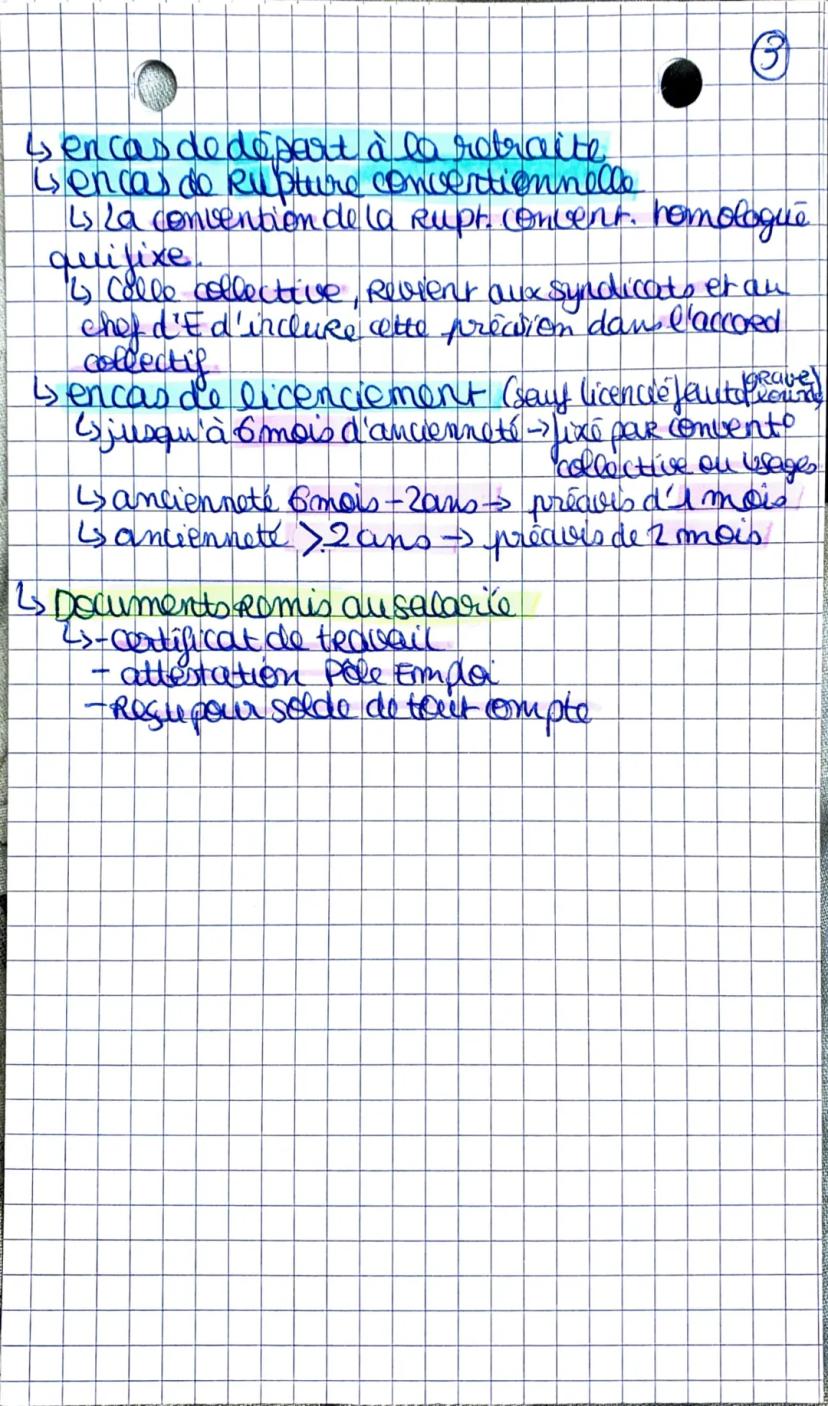 3
↳ en cas de départ à la retraite
↳ en cas de Rupture conventionnelle
↳ La convention de la Rupt. convent. homologué
qui fixe.
↳ Colle collective, Revient aux syndicats et au
chef d'E d'inclure cette précision dans l'accord
collectif
↳ en cas de licenciement (sauf licencié faute grave/
lourde)
↳ jusqu'à 6 mois d'ancienneté → fixé par convent°
collective ou usages
↳ ancienneté 6 mois - 2 ans → préavis d'1 mois
↳ ancienneté ⩾ 2 ans → préavis de 2 mois
↳ Documents remis au salarié
↳ - certificat de travail
- attestation Pôle Emploi
- Reçu pour solde de tout compte